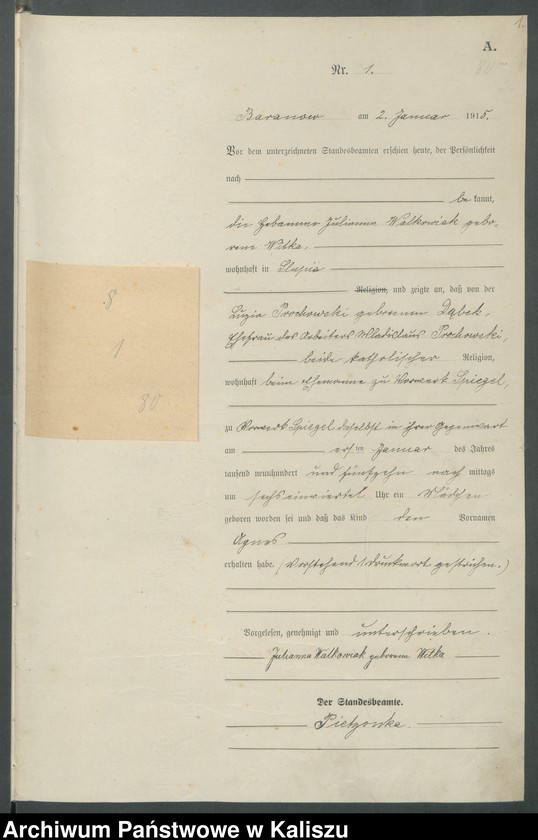 1.
A.
80
Nr. 1.
Baranow am 2. Januar 1915.
Vor dem unterzeichneten Standesbeamten erschien heute, der Persönlichkeit
nach
be kannt,
die Hebamme Julianna Walkowiak gebo-
rene Wilka,
wohnhaft in Slupia
Religion, und zeigte an, daß von der
Luzia Prochowski geborenen Dąbek,
Ehefrau des Arbeiters Wladislaus Prochowski,
beide katholischer Religion,
wohnhaft beim Ehemanne zu Vorwerk Spiegel,
zu Vorwerk Spiegel daselbst in ihrer Gegenwart
am ersten Januar des Jahres
tausend neunhundert und fünfzehn nach mittags
um sechseinviertel Uhr ein Mädchen
geboren worden sei und daß das Kind den Vornamen
Agnes
erhalten habe. (Vorstehend 1 Druckwort gestrichen.)
8
1
80
Vorgelesen, genehmigt und unterschrieben.
Julianna Walkowiak geborene Wilka
Der Standesbeamte.
Pietzonka.
Archiwum Państwowe w Kaliszu